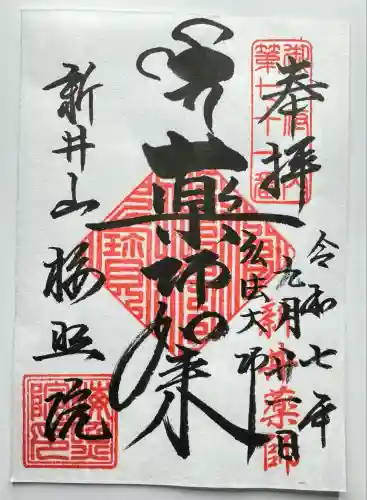 奉拝
令和七年
九月廿一日
弘法大師
薬師如来
新井山
梅照院
新井薬師
第七十一番